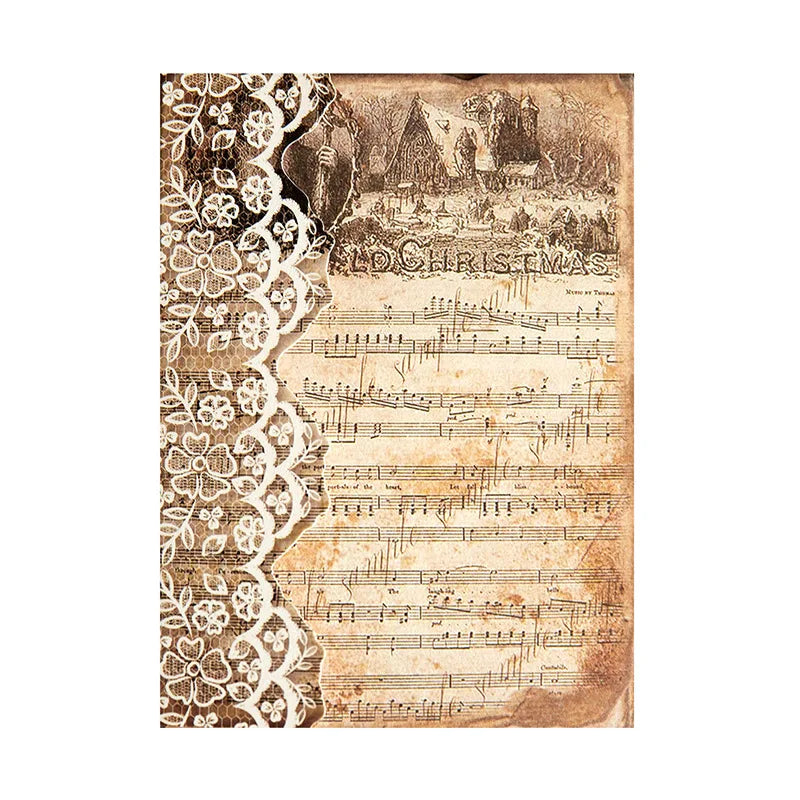 LD CHRISTMAS
MUSIC BY THOMAS
ped
ped
the por
portals of the heart, Let fall bliss a-bound,
The laughing bells
ped
Cantabile.